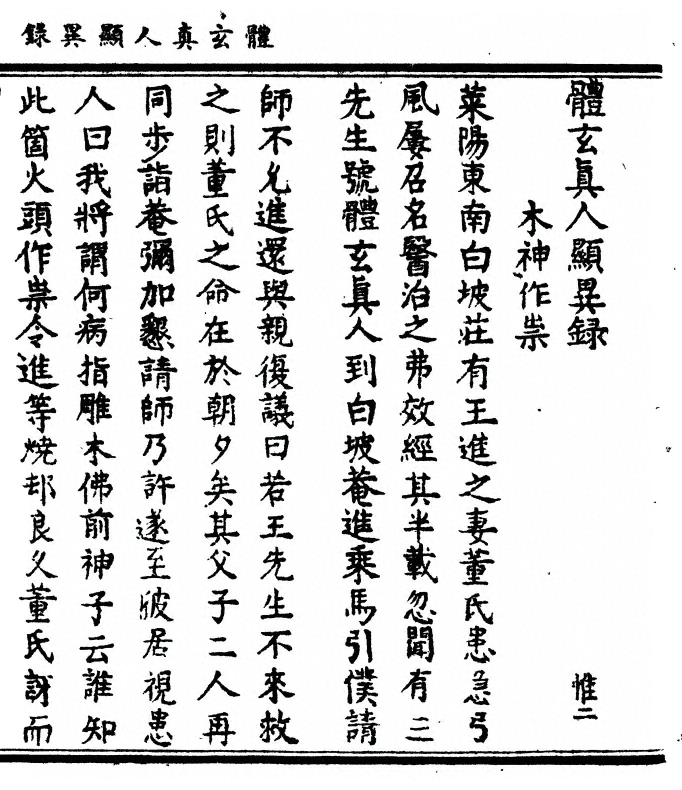 體玄真人顯異錄
體玄眞人顯異録
惟二
木神作祟
萊陽東南白坡莊有王進之妻董氏患急弓
風屢召名醫治之弗效經其半載忽聞有三
先生號體玄眞人到白坡菴進乘馬引僕請
師不允進還與親復議曰若王先生不來救
之則董氏之命在於朝夕矣其父子二人再
同步詣菴彌加懇請師乃許遂至彼居視患
人曰我將謂何病指雕木佛前神子云誰知
此箇火頭作祟令進等燒却良久董氏訝而